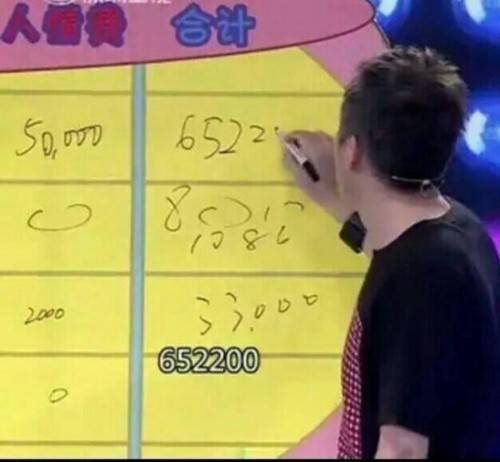 人情费 合计
50,000 6522
2000 33,000
652200
0